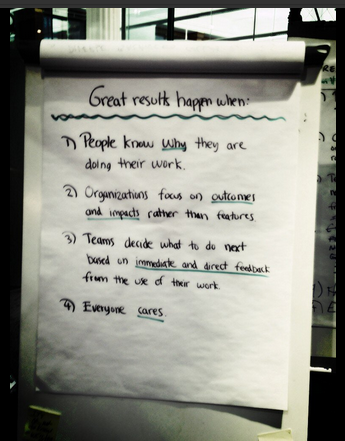 Great results happen when:
1) People know why they are
doing their work.
2) Organizations focus on outcomes
and impacts rather than features
3) Teams decide what to do next
based on immediate and direct feedback
from the use of their work.
4) Everyone cares.